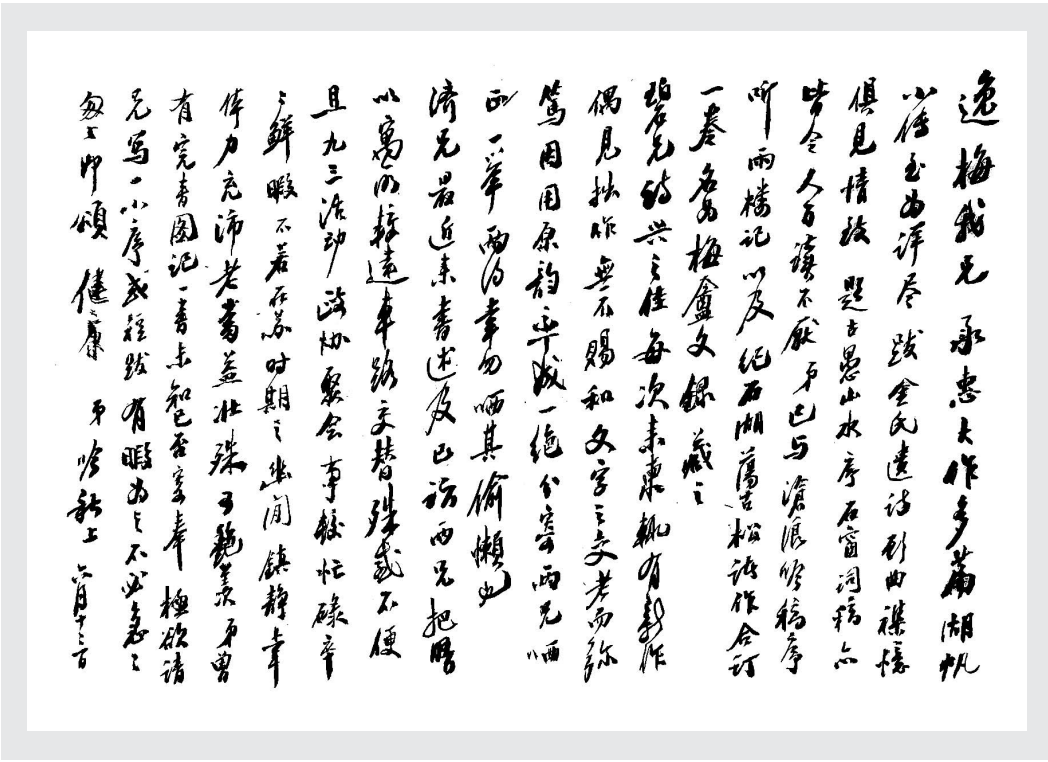 逸梅我兄 承惠大作多篇湖帆
小传至为详尽 跋金氏遗诗 顾曲襍憶
俱见情致 題古愚山水 序石窗词稿亦
皆令人百读不厭 弟已与 滄浪吟稿序
听雨楼记以及纪石湖蕩古松诸作合订
一卷 名为梅盦文録 藏之
碧兄诗兴之佳 每次来柬輒有新作
偶見拙作無不賜和 文字之交老而弥
篤 因用原韵
一举两得幸勿哂其偷懒也
濟兄最近来書述及已访两兄把晤
以寓所較遠車路交替殊感不便
且九三活动 政协聚会 事較忙碌 辛
鲜暇 不若在苏时期之幽閒鎮静 幸
体力充沛 老當益壮 殊可艶羡 弟曾
有完書图记一書未知已否寄奉 極欲请
兄写一小序或短跋 有暇为之不必急之
匆匆 即颂 健康 弟 吟秋上 六月十三日